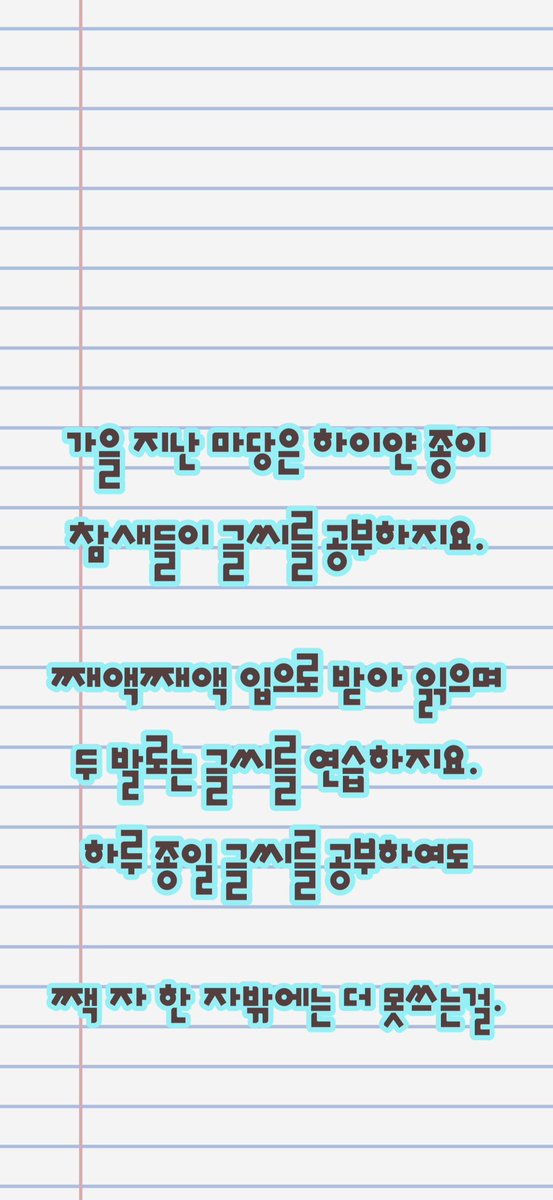 가을 지난 마당은 하이얀 종이
참새들이 글씨를 공부하지요.
째액째액 입으로 받아 읽으며
두 발로는 글씨를 연습하지요.
하루 종일 글씨를 공부하여도
짹 자 한 자밖에는 더 못쓰는걸.